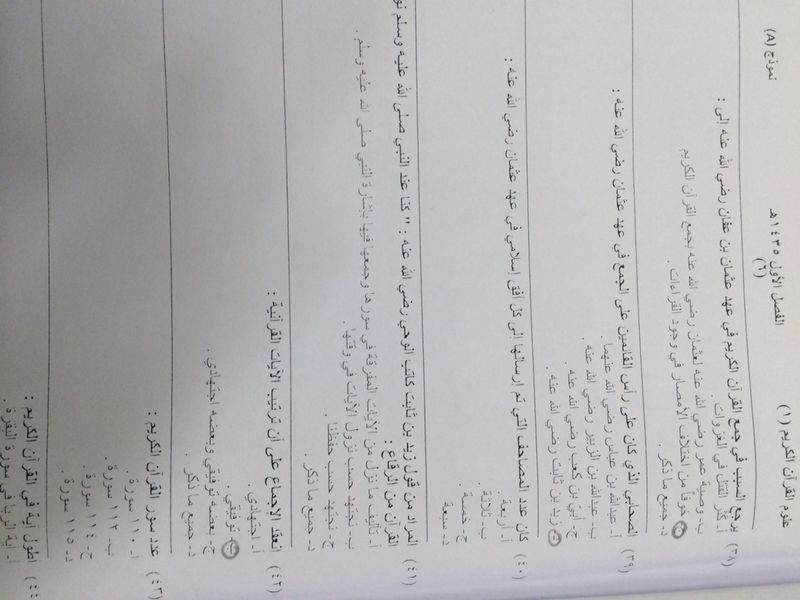 علوم القرآن الكريم (١)
الفصل الأول ١٤٣٥هـ
نموذج (A)
(٦)
(٣٨) يرجع السبب في جمع القرآن الكريم في عهد عثمان بن عفان رضي الله عنه إلى :
أ- كثر القتل في الغزوات .
ب- وصية عمر رضي الله عنه لعثمان رضي الله عنه بجمع القرآن الكريم
ج- خوفاً من اختلاف الأمصار في وجوه القراءات .
د- جميع ما ذكر .
(٣٩) الصحابي الذي كان على رأس القائمين على الجمع في عهد عثمان رضي الله عنه :
أ- عبدالله بن عباس رضي الله عنهما.
ب- عبدالله بن الزبير رضي الله عنه .
ج- أبي بن كعب رضي الله عنه .
د- زيد بن ثابت رضي الله عنه .
(٤٠) كان عدد المصاحف التي تم إرسالها إلى كل أفق إسلامي في عهد عثمان رضي الله عنه :
أ- أربعة .
ب- ثلاثة .
ج- خمسة .
د- سبعة
(٤١) المراد من قول زيد بن ثابت كاتب الوحي رضي الله عنه : " كنا عند النبي صلى الله عليه وسلم
القرآن من الرقاع :
أ- تأليف ما نزل من الآيات المفرقة في سورها وجمعها فيها بإشارة النبي صلى الله عليه وسلم .
ب- نجتهد حسب نزول الآيات في وقتها .
ج- نجتهد حسب حفظنا .
د- جميع ما ذكر .
(٤٢) انعقد الإجماع على أن ترتيب الآيات القرآنية :
أ- اجتهادي .
ب- توقيفي .
ج- بعضه توقيفي وبعضه اجتهادي .
د- جميع ما ذكر .
(٤٣) عدد سور القرآن الكريم :
أ- ١١٠ سورة .
ب- ١١٢ سورة .
ج- ١١٤ سورة .
د- ١١٥ سورة .
(٤٤) أطول آية في القرآن الكريم :
أ- آية الربا في سورة البقرة .